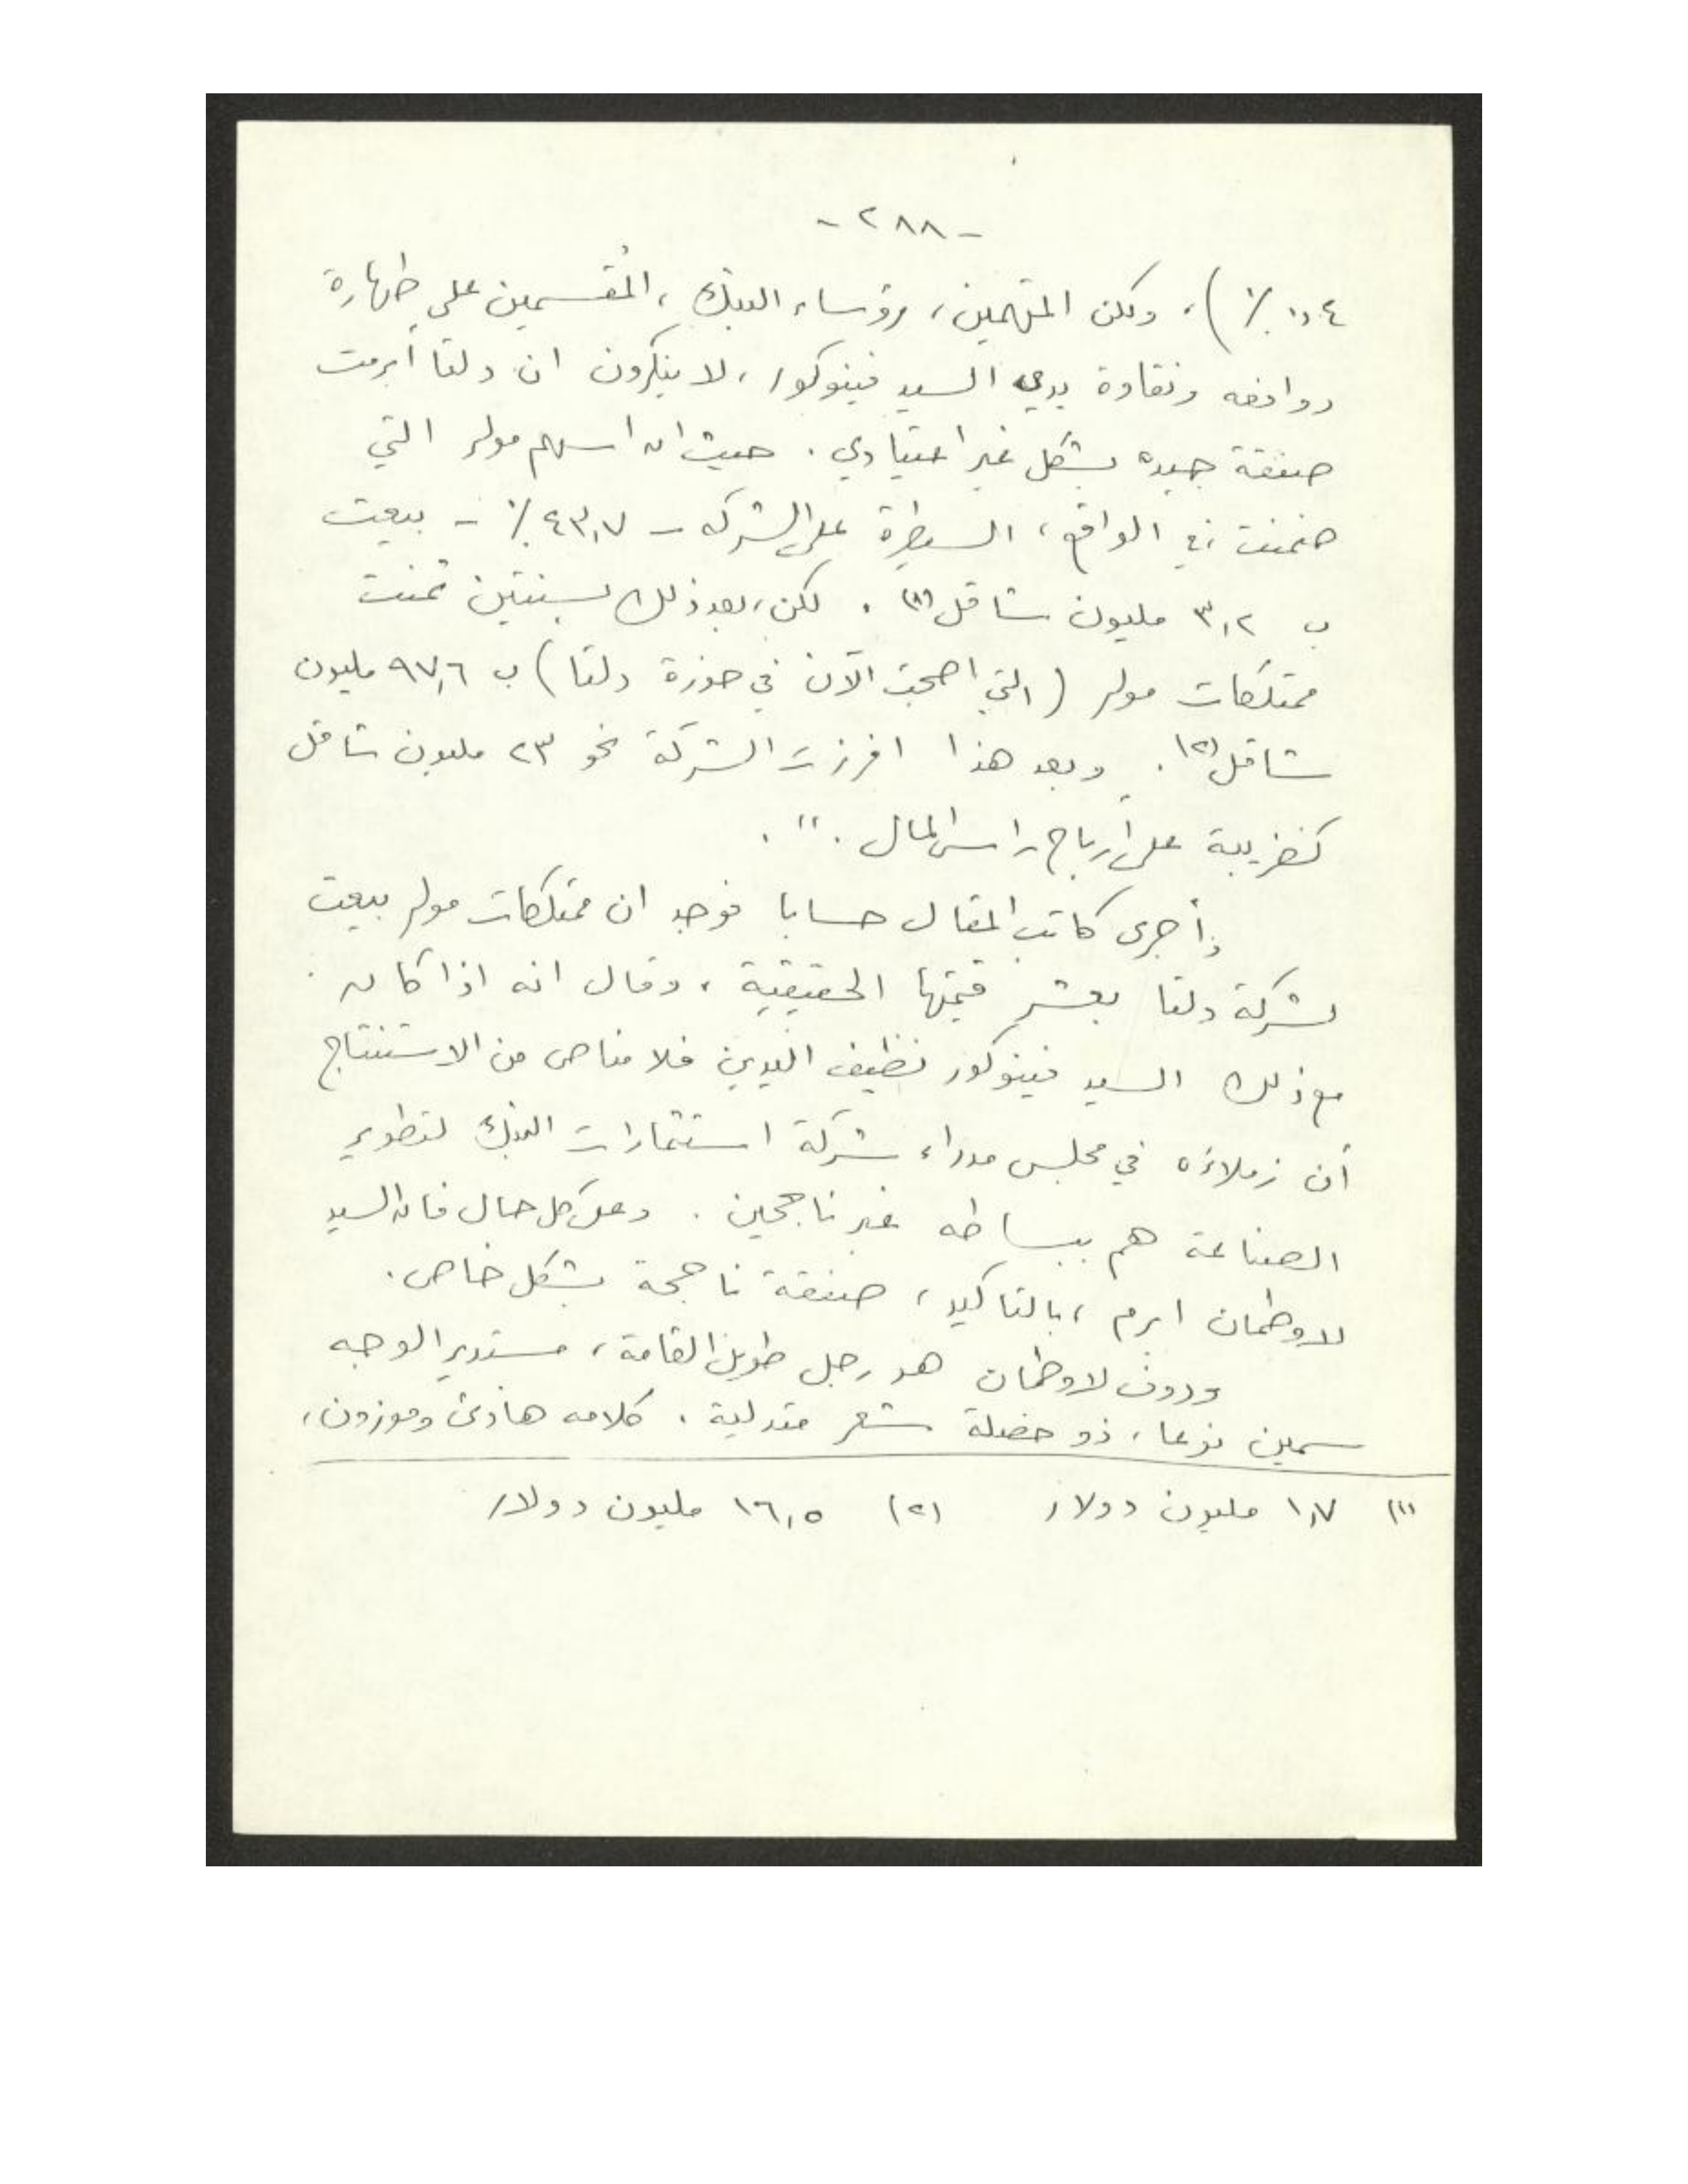 - ٢٨٨ -
٠,٤ ٪) ، ولكن المتهمين ، رؤساء البنك ، المُقسمين على طهارة
دوافعه ونقاوة يدي السيد فينوكور ، لا ينكرون ان دلتا أبرمت
صفقة جيده بشكل غير اعتيادي . حيث ان اسهم مولر التي
ضمنت في الواقع ، السيطرة على الشركه - ٤٣,٧ ٪ - بيعت
ب ٣,٢ مليون شاقل (١) . لكن ، بعد ذلك بسنتين ثمنت
ممتلكات مولر ( التي اصبحت الآن في حوزة دلتا ) ب ٩٧,٦ مليون
شاقل (٢) . وبعد هذا افرزت الشركة نحو ٢٣ مليون شاقل
كضريبة على أرباح راس المال . " .
وأجرى كاتب المقال حسابا فوجد ان ممتلكات مولر بيعت
لشركة دلتا بعشر قيمتها الحقيقية ، وقال انه اذا كان
مع ذلك السيد فينوكور نظيف اليدين فلا مناص من الاستنتاج
أن زملاؤه في مجلس مدراء شركة استثمارات البنك لتطوير
الصناعة هم ببساطه غير ناجحين . وعلى كل حال فان السيد
لاوطمان ابرم ، بالتاكيد ، صفقة ناجحة بشكل خاص .
ودوف لاوطمان هو رجل طويل القامة ، مستدير الوجه
سمين نوعا ، ذو خصلة شعر متدلية . كلامه هادئ وموزون ،
(١) ١,٧ مليون دولار (٢) ١٦,٥ مليون دولار